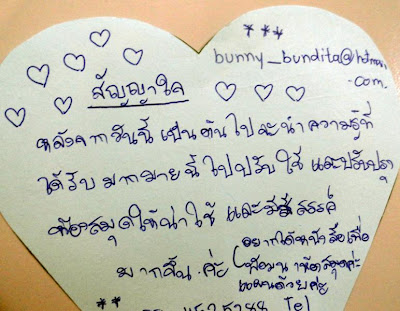 ***
bunny_bundita@hotmail
.com.
สัญญาใจ
หลังจากวันนี้ เป็นต้นไป จะนำความรู้ที่
ได้รับ มากมายนี้ ไปปรับใช้ และปรับปรุง
ห้องสมุดให้น่าใช้ และ สร้างสรรค์
มากขึ้น ค่ะ
อยากได้หน้า สื่อเพื่อ
ห้องสมุดค่ะ
แนนด้วยค่ะ
**
5288 Tel